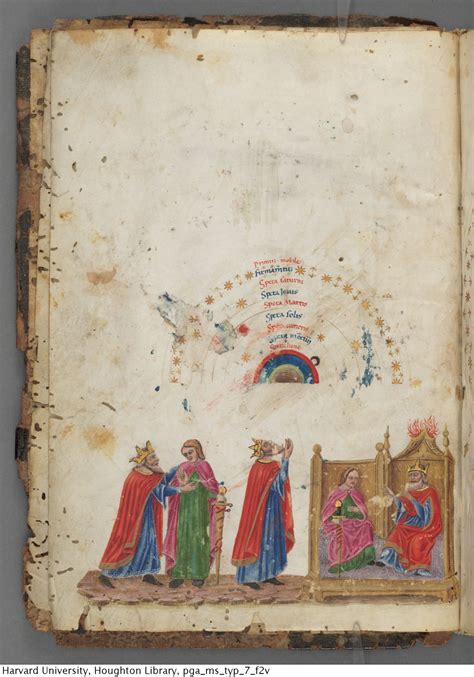 primu mobile
firmamtu
Spera saturni
Spera Jouis
Spera Martis
Spera solis
Spera veneris
Spera lune
Harvard University, Houghton Library, pga_ms_typ_7_f2v